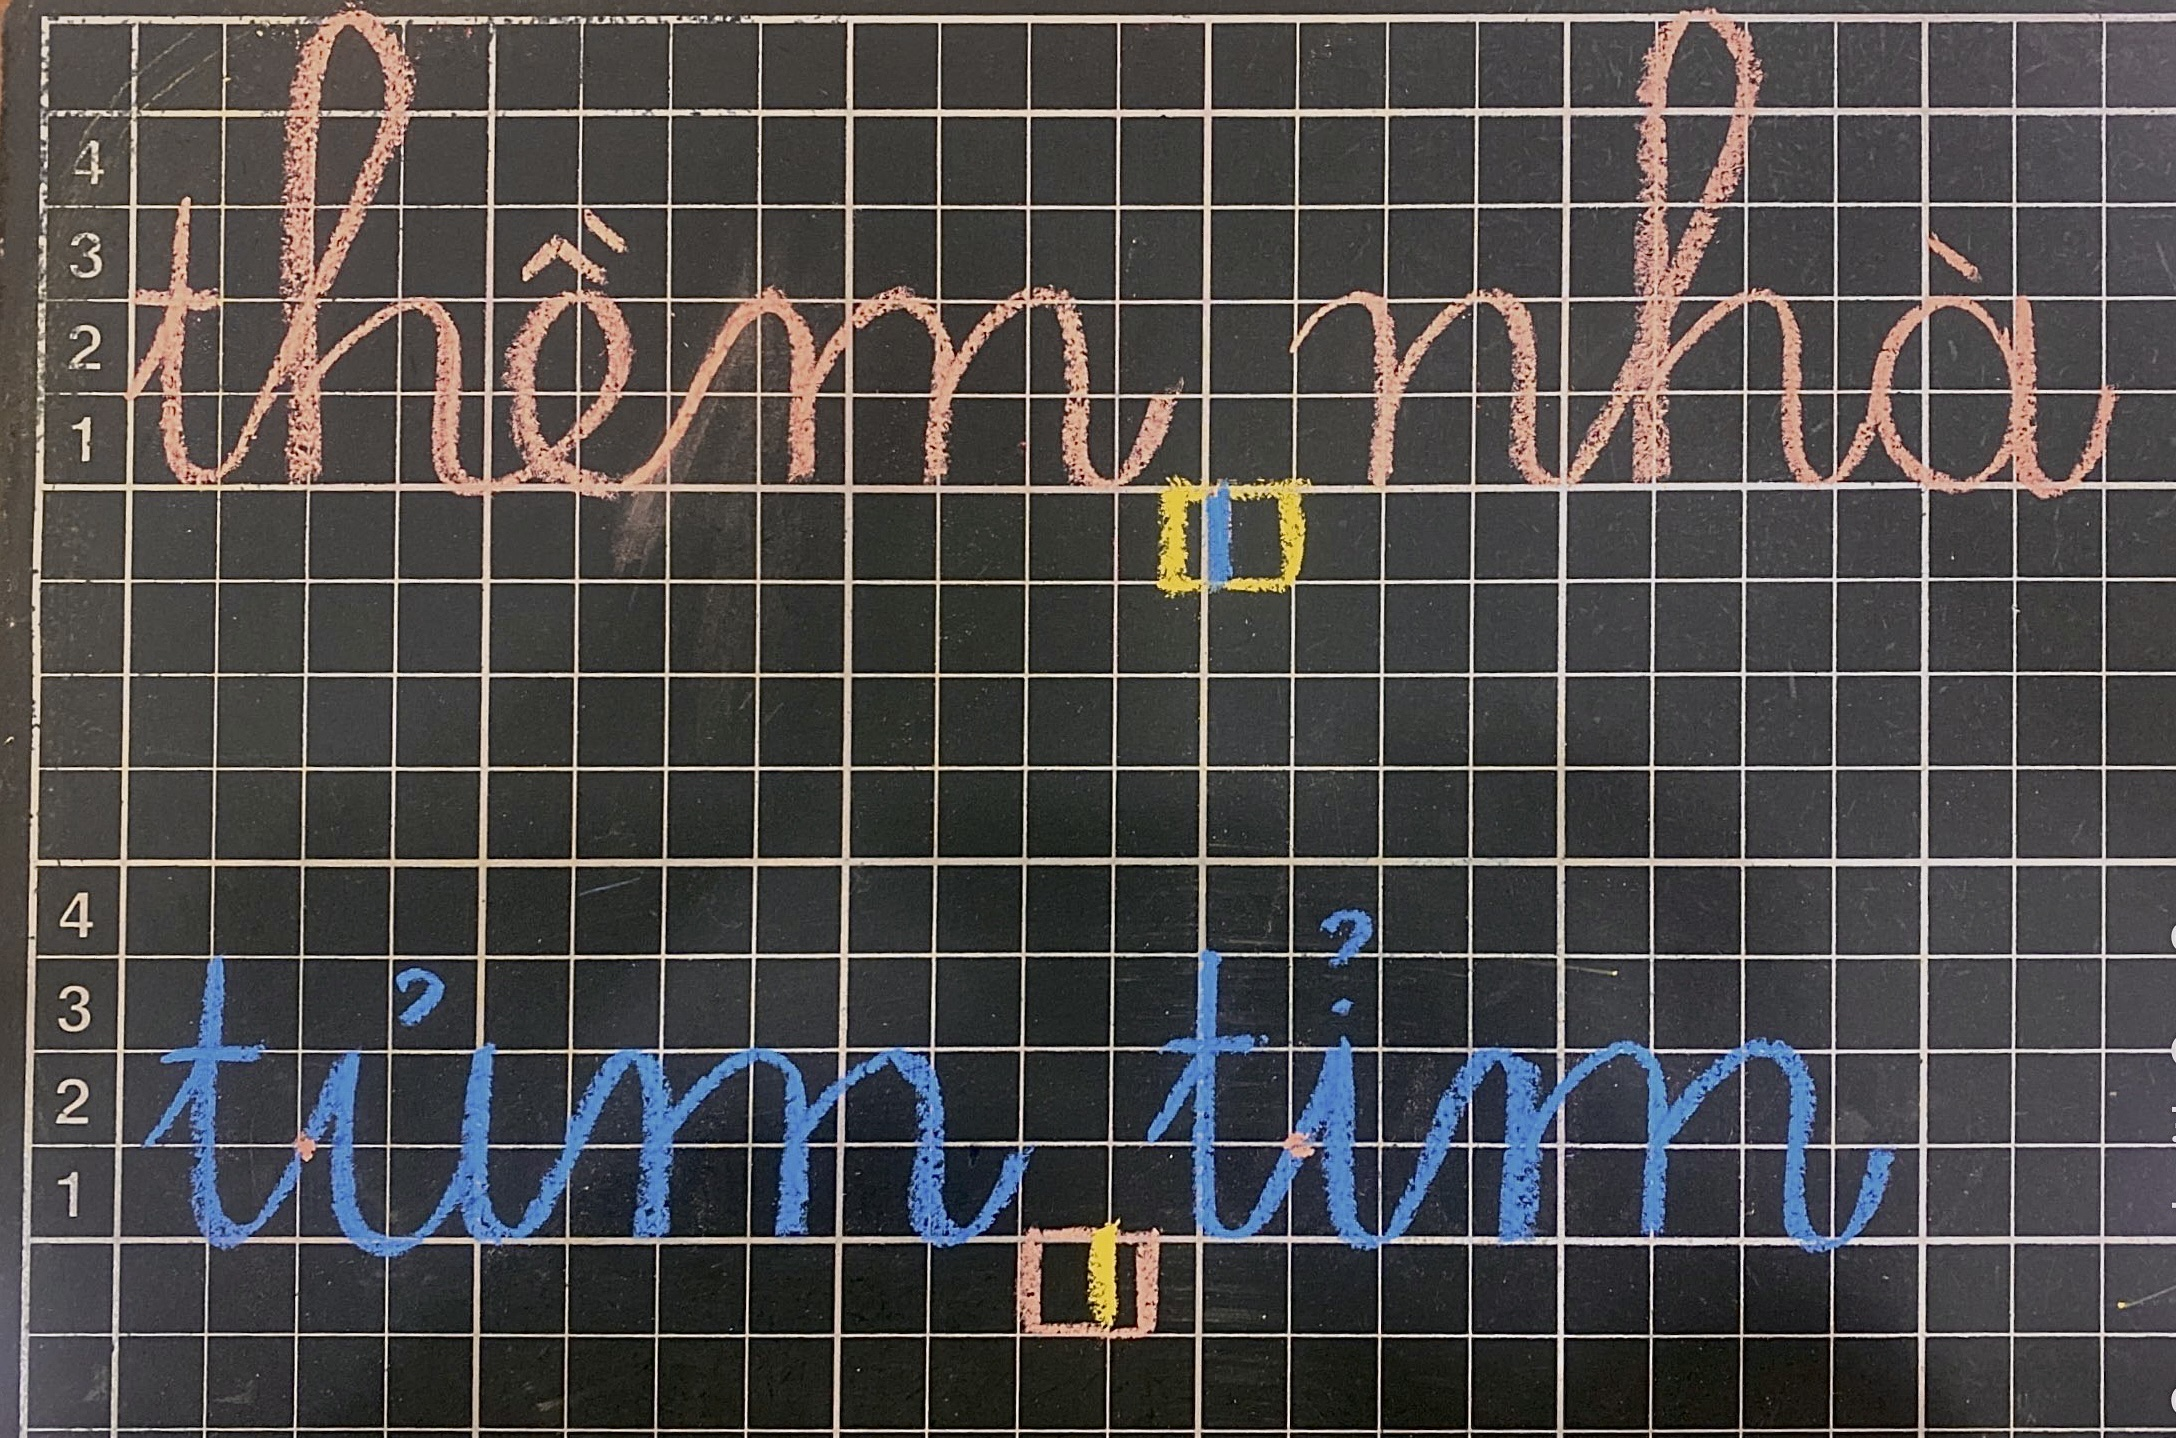 4
3
2
1
thềm nhà
4
3
2
1
tủm tỉm